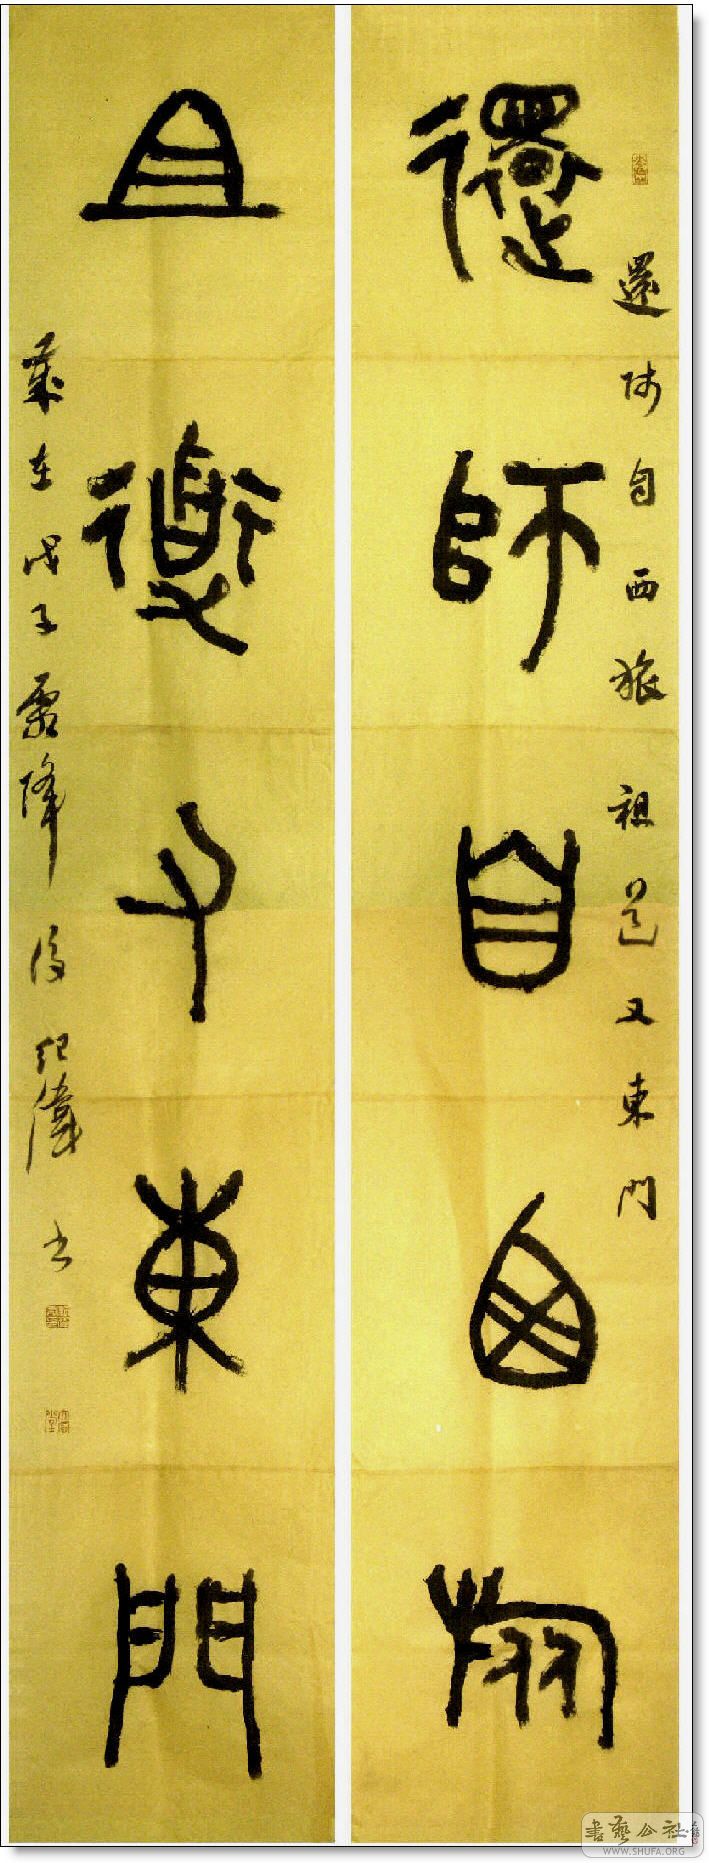 還師自西旅祖道又東門
還師自西旅
且道又東門
歲在戊子霜降後紀偉书
書藝公社
WWW.SHUFA.ORG